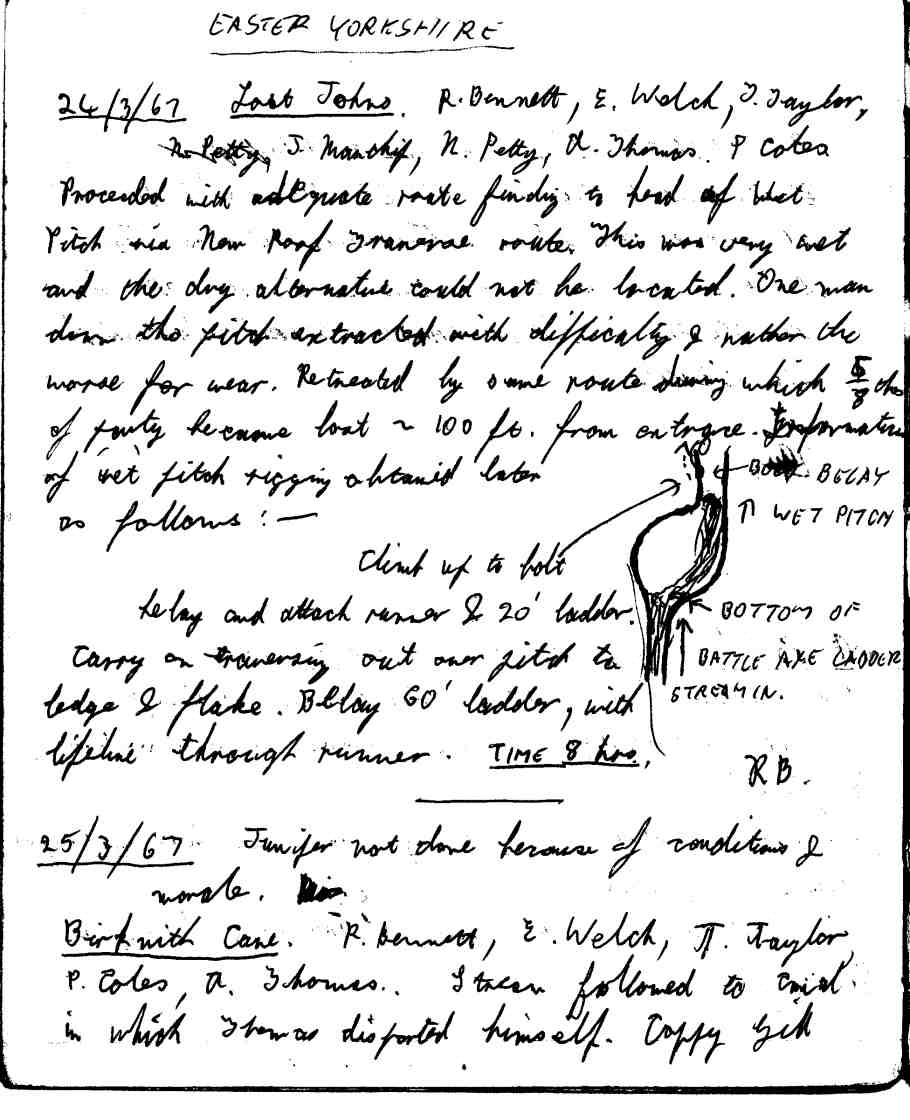 EASTER YORKSHIRE
24/3/67 Lost Johns. R. Bennett, E. Welch, T. Taylor,
N. Petty, J. Manchip, N. Petty, A. Thomas. P Coles
Proceeded with adequate route finding to head of Wet
Pitch via New Roof Traverse route. This was very wet
and the dry alternative could not be located. One man
down the pitch extracted with difficulty & rather the
worse for wear. Retreated by same route during which 5/8 ths
of party became lost ~ 100 ft. from entrance. Information
of wet pitch rigging obtained later
as follows : —
BOLT BELAY
WET PITCH
Climb up to bolt
belay and attach runner & 20' ladder.
Carry on traversing out over pitch to
ledge & flake. Belay 60' ladder, with
lifeline through runner. TIME 8 hrs.
BOTTOM OF
BATTLE AXE LADDER
STREAM IN.
RB.
25/3/67 Juniper not done because of conditions &
morale.
Birkwith Cave. R. Bennett, E. Welch, T. Taylor
P. Coles, A. Thomas.. Stream followed to
in which Thomas disported himself. Coppy Gill